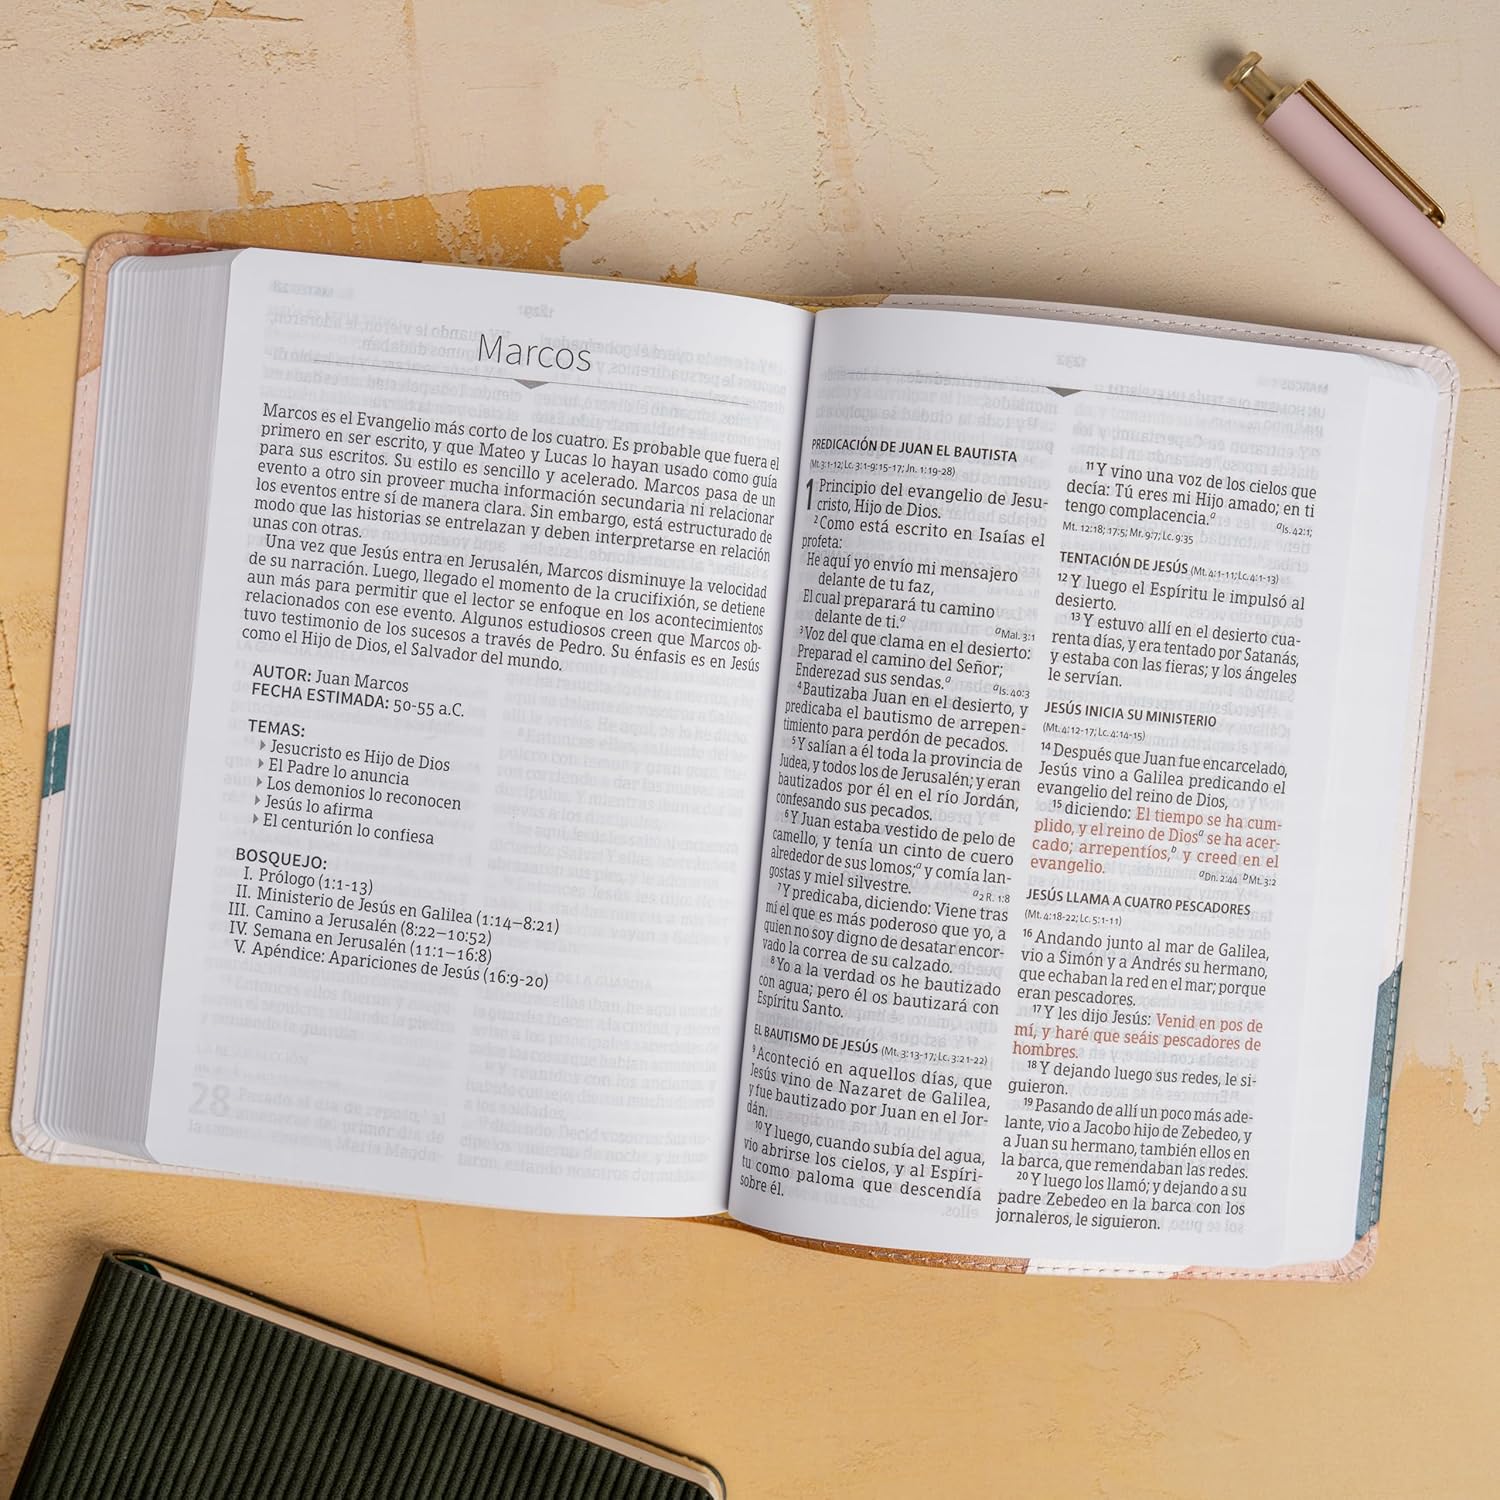 Marcos
Marcos es el Evangelio más corto de los cuatro. Es probable que fuera el
primero en ser escrito, y que Mateo y Lucas lo hayan usado como guía
para sus escritos. Su estilo es sencillo y acelerado. Marcos pasa de un
evento a otro sin proveer mucha información secundaria ni relacionar
los eventos entre sí de manera clara. Sin embargo, está estructurado de
modo que las historias se entrelazan y deben interpretarse en relación
unas con otras.
Una vez que Jesús entra en Jerusalén, Marcos disminuye la velocidad
de su narración. Luego, llegado el momento de la crucifixión, se detiene
aun más para permitir que el lector se enfoque en los acontecimientos
relacionados con ese evento. Algunos estudiosos creen que Marcos ob-
tuvo testimonio de los sucesos a través de Pedro. Su énfasis es en Jesús
como el Hijo de Dios, el Salvador del mundo.
AUTOR: Juan Marcos
FECHA ESTIMADA: 50-55 a.C.
TEMAS:
Jesucristo es Hijo de Dios
El Padre lo anuncia
Los demonios lo reconocen
Jesús lo afirma
El centurión lo confiesa
BOSQUEJO:
I. Prólogo (1:1-13)
II. Ministerio de Jesús en Galilea (1:14–8:21)
III. Camino a Jerusalén (8:22–10:52)
IV. Semana en Jerusalén (11:1–16:8)
V. Apéndice: Apariciones de Jesús (16:9-20)
PREDICACIÓN DE JUAN EL BAUTISTA
(Mt. 3:1-12; Lc. 3:1-9; 15-17; Jn. 1:19-28)
1 Principio del evangelio de Jesu-
cristo, Hijo de Dios.
2 Como está escrito en Isaías el
profeta:
He aquí yo envío mi mensajero
delante de tu faz,
El cual preparará tu camino
delante de ti.a aMal. 3:1
3 Voz del que clama en el desierto:
Preparad el camino del Señor;
Enderezad sus sendas.a aIs. 40:3
4 Bautizaba Juan en el desierto, y
predicaba el bautismo de arrepen-
timiento para perdón de pecados.
5 Y salían a él toda la provincia de
Judea, y todos los de Jerusalén; y eran
bautizados por él en el río Jordán,
confesando sus pecados.
6 Y Juan estaba vestido de pelo de
camello, y tenía un cinto de cuero
alrededor de sus lomos;a y comía lan-
gostas y miel silvestre. a2 R. 1:8
7 Y predicaba, diciendo: Viene tras
mí el que es más poderoso que yo, a
quien no soy digno de desatar encor-
vado la correa de su calzado.
8 Yo a la verdad os he bautizado
con agua; pero él os bautizará con
Espíritu Santo.
EL BAUTISMO DE JESÚS (Mt. 3:13-17; Lc. 3:21-22)
9 Aconteció en aquellos días, que
Jesús vino de Nazaret de Galilea,
y fue bautizado por Juan en el Jor-
dán.
10 Y luego, cuando subía del agua,
vio abrirse los cielos, y al Espíri-
tu como paloma que descendía
sobre él.
11 Y vino una voz de los cielos que
decía: Tú eres mi Hijo amado; en ti
tengo complacencia.a aIs. 42:1;
Mt. 12:18; 17:5; Mr. 9:7; Lc. 9:35
TENTACIÓN DE JESÚS (Mt. 4:1-11; Lc. 4:1-13)
12 Y luego el Espíritu le impulsó al
desierto.
13 Y estuvo allí en el desierto cua-
renta días, y era tentado por Satanás,
y estaba con las fieras; y los ángeles
le servían.
JESÚS INICIA SU MINISTERIO
(Mt. 4:12-17; Lc. 4:14-15)
14 Después que Juan fue encarcelado,
Jesús vino a Galilea predicando el
evangelio del reino de Dios,
15 diciendo: El tiempo se ha cum-
plido, y el reino de Diosa se ha acer-
cado; arrepentíos,b y creed en el
evangelio. aDn. 2:44 bMt. 3:2
JESÚS LLAMA A CUATRO PESCADORES
(Mt. 4:18-22; Lc. 5:1-11)
16 Andando junto al mar de Galilea,
vio a Simón y a Andrés su hermano,
que echaban la red en el mar; porque
eran pescadores.
17 Y les dijo Jesús: Venid en pos de
mí, y haré que seáis pescadores de
hombres.
18 Y dejando luego sus redes, le si-
guieron.
19 Pasando de allí un poco más ade-
lante, vio a Jacobo hijo de Zebedeo, y
a Juan su hermano, también ellos en
la barca, que remendaban las redes.
20 Y luego los llamó; y dejando a su
padre Zebedeo en la barca con los
jornaleros, le siguieron.